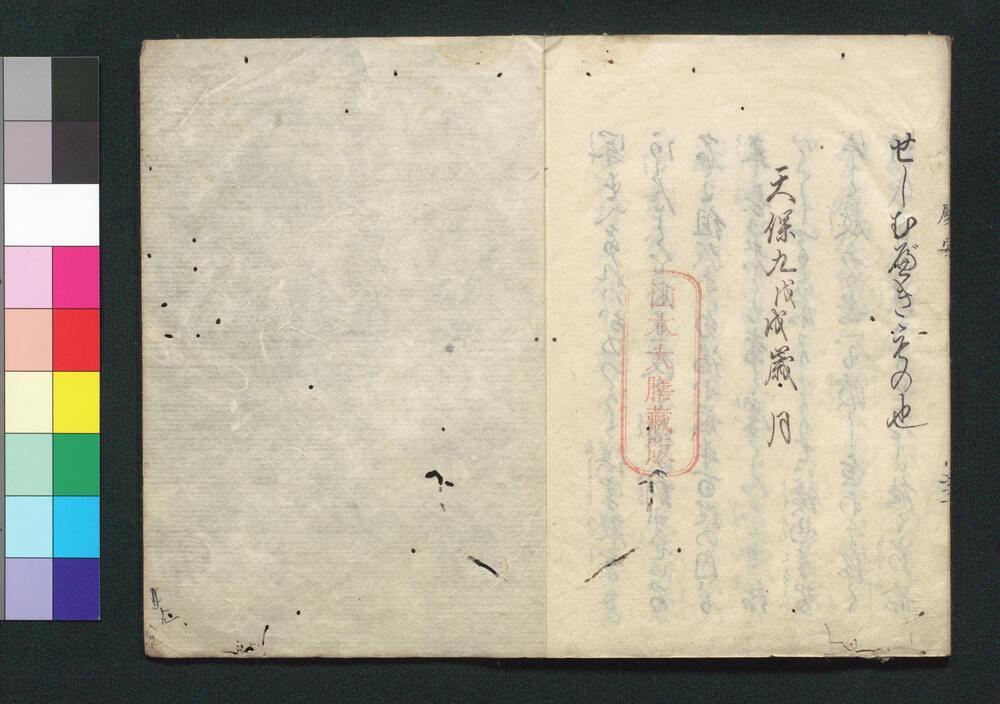 せしむべきもの也
天保九戊戌歳 月
山本大膳蔵版